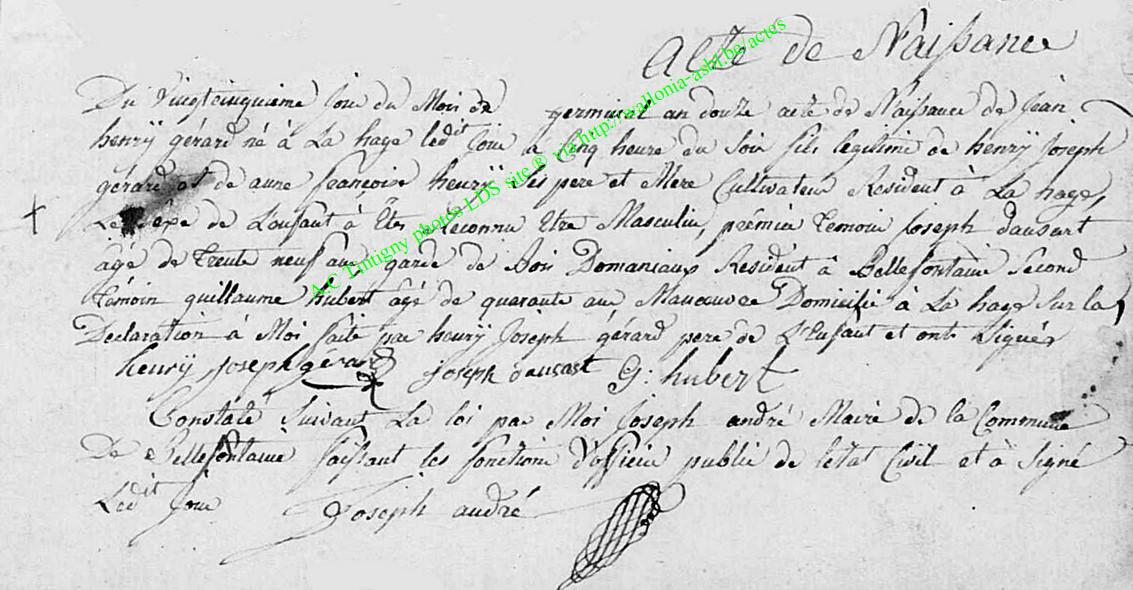 Acte de Naissance
Du vingtcinquieme jour du Mois de germinal an douze acte de Naissance de Jean
henrÿ gérard né à La hage ledit jour à Cinq heure du Soir fils legitime de henrÿ Joseph
gérard et de anne françoise henrÿ Ses pere et Mere Cultivateur Resident à La hage,
Le Sexe de L'enfant à Eté reconnu Etre Masculin, prémier Temoin Joseph dausart
âgé de Trente neuf ans garde de Bois Domaniaux Resident à Bellefontaine Second
Témoin guillaume hubert âgé de quarante ans Manoeuvre Domicilié à La hage Sur la
Declaration à Moi faite par henrÿ Joseph gérard pere de L'Enfant et ont Signés
henrÿ joseph gerard joseph dausart G: hubert
Constaté Suivant La loi par Moi Joseph andré Maire de la Commune
De Bellefontaine faissant les fonctions d'officier public de letat Civil et à Signé
Ledit jour Joseph andré
A.C Tintigny photos LDS site ® via http://wallonia-asbl.be/actes